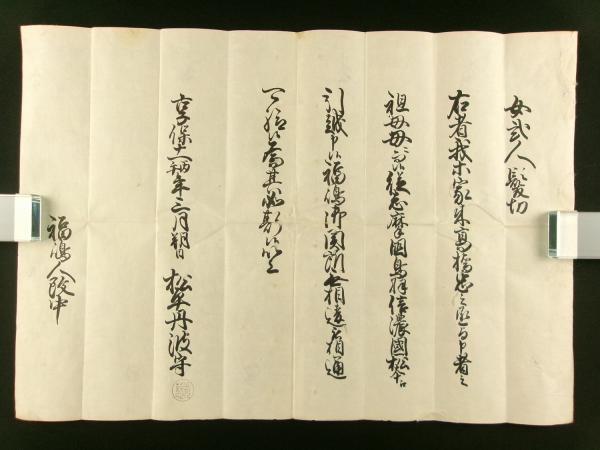 女弐人髪切
右者我等家来高橋忠之丞与申者之
祖母母ニ而従志摩國鳥羽信濃國松本江
引越申候福嶋御関所無相違有通
可給候為其如斯候以上
享保十一丙午年三月朔日 松平丹波守
福嶋人改中